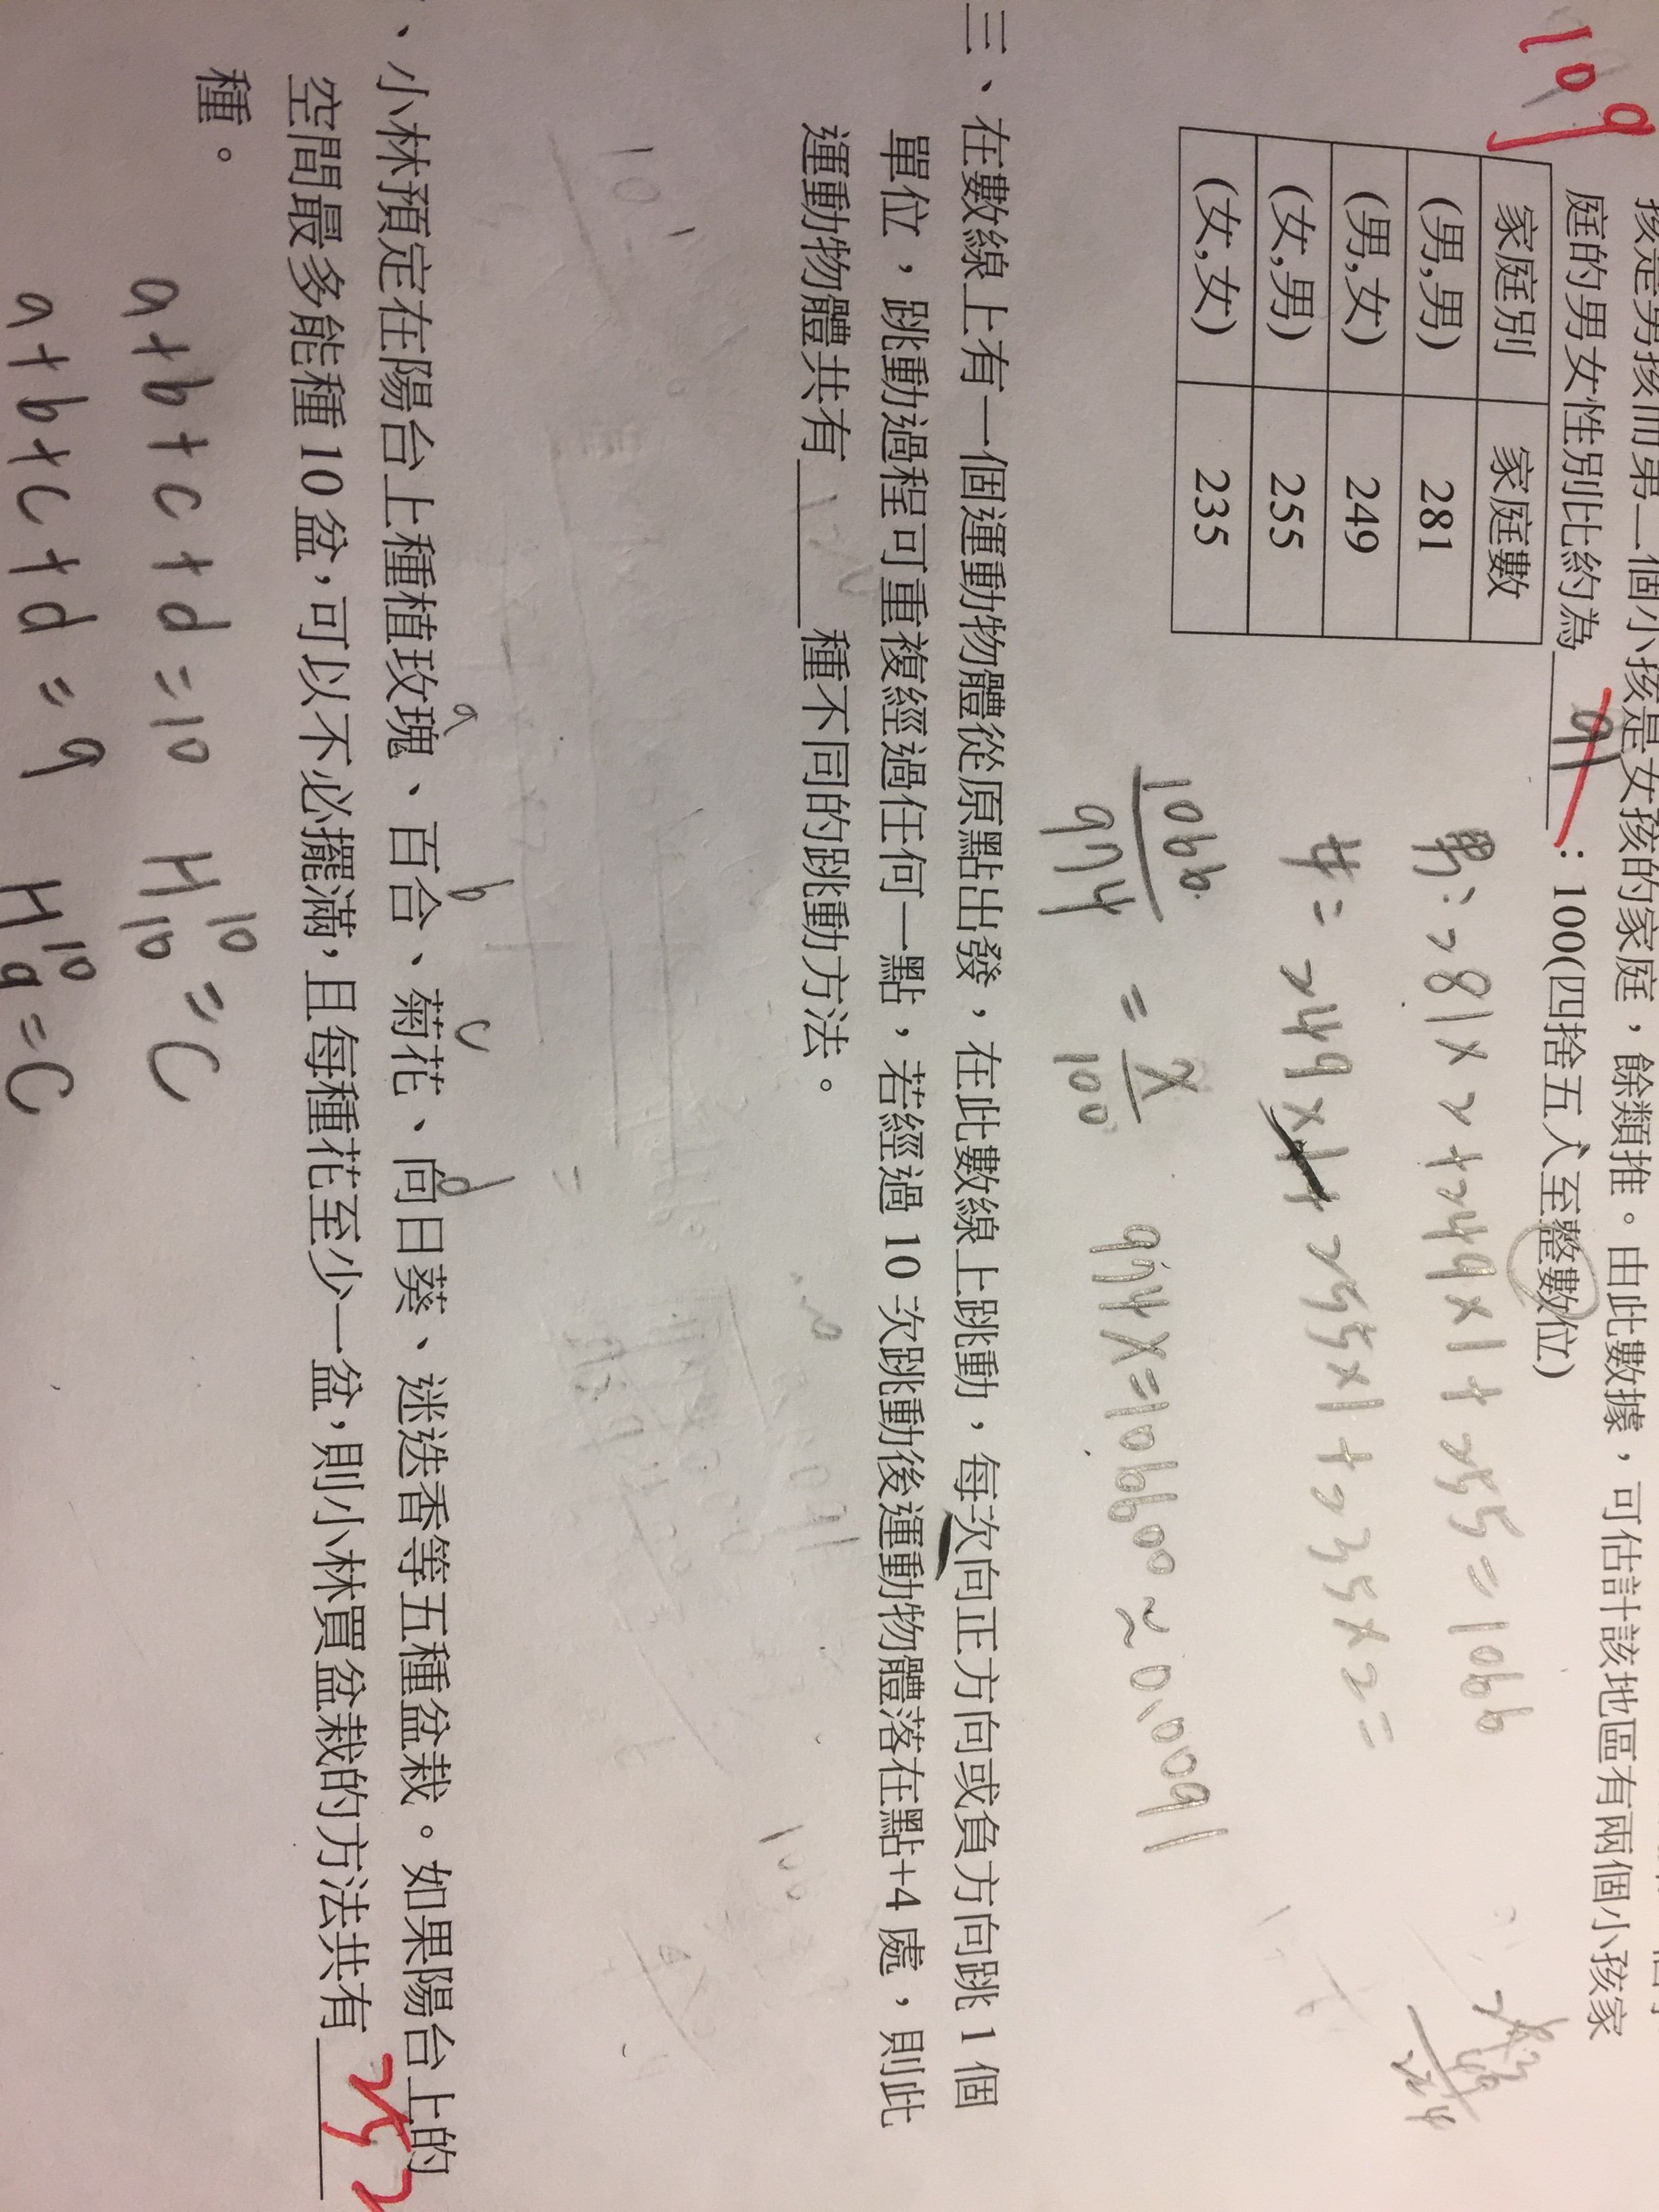 109
孩是男孩而第二個小孩是女孩的家庭,餘類推。由此數據,可估計該地區有兩個小孩家
庭的男女性別比約為 91 :100(四捨五入至整數位)
家庭別 家庭數
(男,男) 281
(男,女) 249
(女,男) 255
(女,女) 235
男:281×2+249×1+255=1066
女=249×1+255×1+235×2=
1066/974 = x/100 974x=106600≈0.0091
三、在數線上有一個運動物體從原點出發,在此數線上跳動,每次向正方向或負方向跳 1 個
單位,跳動過程可重複經過任何一點,若經過 10 次跳動後運動物體落在點+4 處,則此
運動物體共有 種不同的跳動方法。
a b c d
、小林預定在陽台上種植玫瑰、百合、菊花、向日葵、迷迭香等五種盆栽。如果陽台上的
空間最多能種 10 盆,可以不必擺滿,且每種花至少一盆,則小林買盆栽的方法共有 252
種。
a+b+c+d=10 H 10 10 =C
a+b+c+d=9 H 10 9 =C